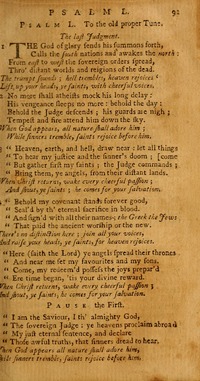 PSALM L. 91
PSALM L. To the old proper Tune.
The last Judgment.
1 THE God of glory sends his summons forth,
Calls the south nations and awakes the north:
From east to west the sovereign orders spread,
Thro' distant worlds and regions of the dead.
The trumpet sounds; hell trembles, heaven rejoices
Lift up your heads, ye saints, with cheerful voices.
2 No more shall atheists mock his long delay:
His vengeance sleeps no more: behold the day:
Behold the Judge descends; his guards are nigh;
Tempest and fire attend him down the sky.
When God appears, all nature shall adore him;
While sinners tremble, saints rejoice before him.
"Heaven, earth, and hell, draw near: let all things
"To hear my justice and the sinner's doom; [come
"But gather first my saints: the Judge commands;
"Bring them, ye angels, from their distant lands.
When Christ returns, wake every cheerful passion;
And shout, ye saints; he comes for your salvation.
"Behold my covenant stands forever good,
"Seal'd by th' eternal sacrifice in blood.
"And sign'd with all their names; the Greek the Jews
"That paid the ancient worship or the new.
There's no distinction here; join all your voices,
And raise your heads, ye saints, for heaven rejoices.
"Here (saith the Lord) ye angels spread their thrones
"And near me set my favourites and my sons.
"Come, my redeem'd possess the joys prepar'd
"Ere time began, 'tis your divine reward.
When Christ returns, wake every cheerful passion;
And shout, ye saints, he comes for your salvation.
PAUSE the First.
"I am the Saviour, I th' almighty God,
"The sovereign Judge: ye heavens proclaim abroad
"My just eternal sentence, and declare
"Those awful truths, that sinners dread to hear.
When God appears all nature shall adore him,
While sinners tremble, saints rejoice before him.